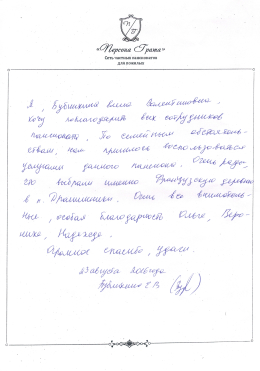 «Персона Грата»
Сеть частных пансионатов
для пожилых
Я, Елена Валентиновна
хочу поблагодарить всех сотрудников
пансионата. По семейным обстоятель-
ствам, нам пришлось воспользоваться
услугами данного пансионата. Очень рады,
что выбрали именно Французскую деревню
в п. Очень все вниматель-
ные, особая благодарность Ольге, Веро-
нике, Надежде.
Огромное спасибо, удачи.
23 августа
Е.В.